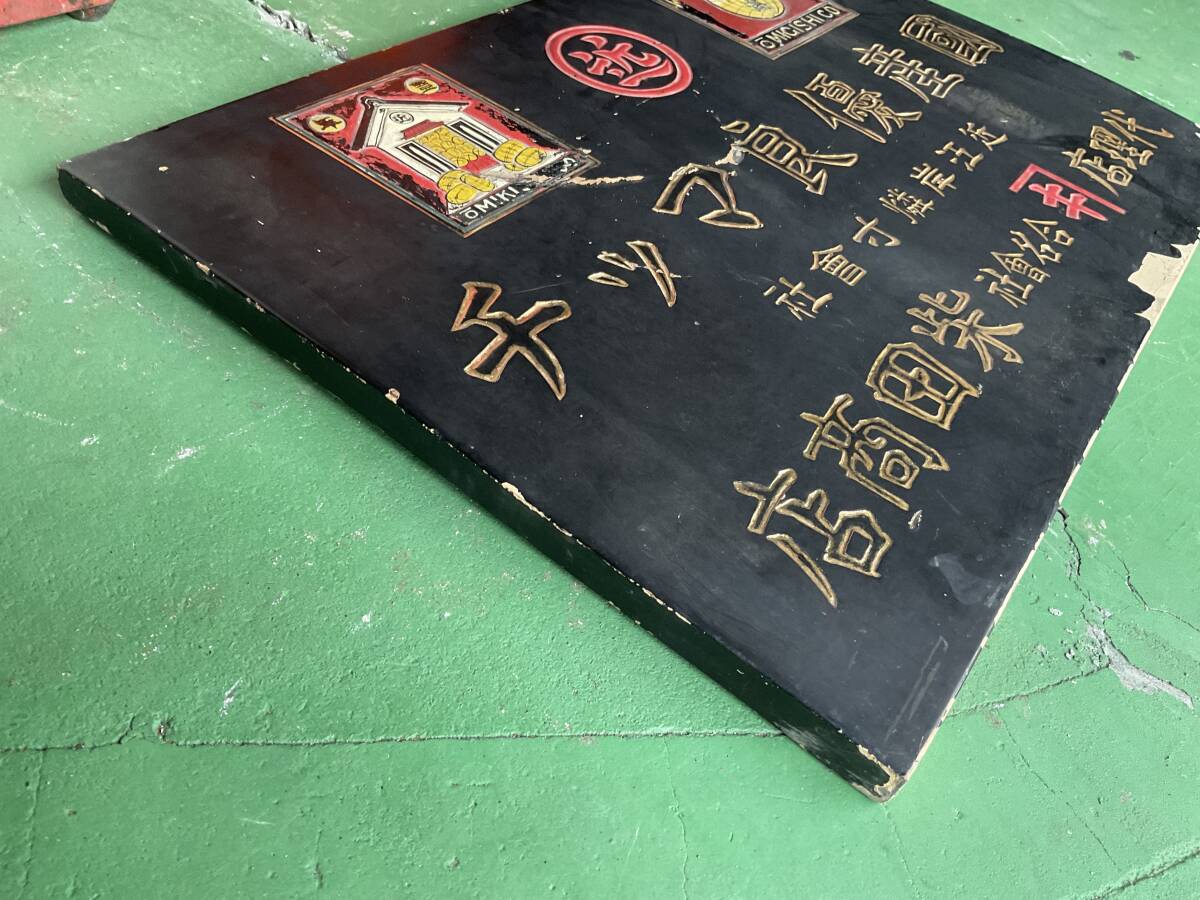 ŌMIGISHI.CO
國産優良マッチ
近江岸燐寸會社
代理店
合名會社
柴田商店